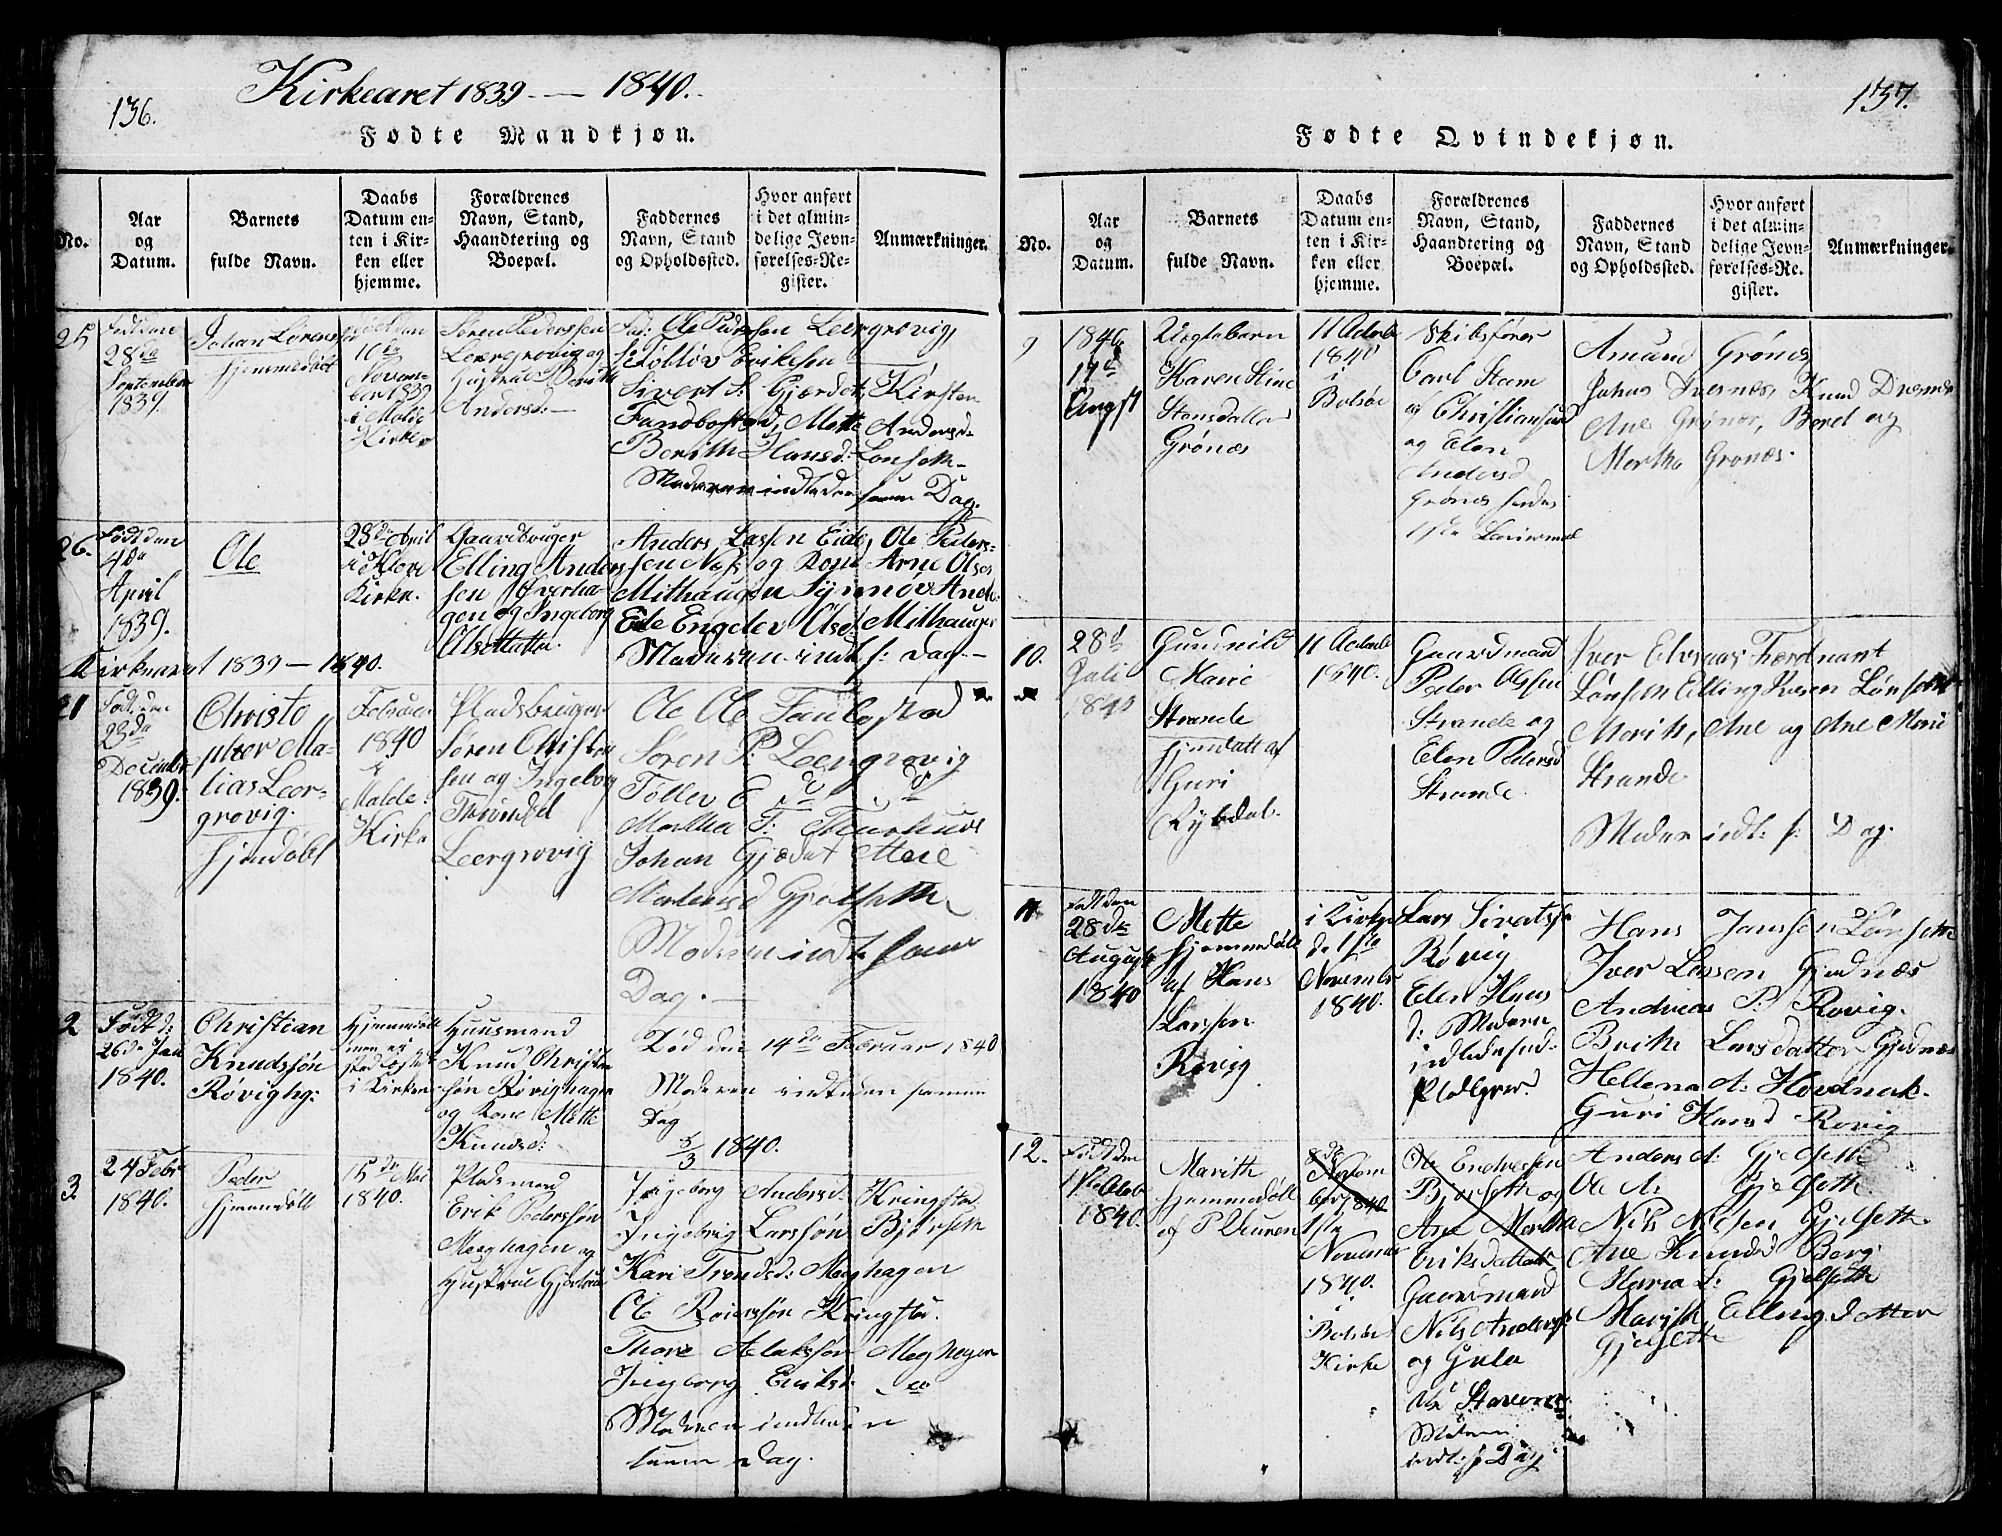 136.
Kirkeaaret 1839 — 1840.
Fødte Mandkjøn.
No.
Aar
og
Datum.
Barnets
fulde Navn.
Daabs
Datum en-
ten i Kir-
ken eller
hjemme.
Forældrenes
Navn, Stand,
Haandtering og
Boepæl.
Faddernes
Navn, Stand
og Opholdssted.
Hvor anført
i det almin-
delige Jevn-
førelses-Re-
gister.
Anmærkninger.
25
Født den
28de
September
1839.
Johan Lorens
hjemmedøbt
10de
Novem-
ber 1839
i Molde
Kirke
Søren Pederssen
Leergrovig og
Hustrue Berith
Andersd: —
Fad: Ole Pederssen Leergrovig,
Tolløv Erikssen
Sivert S: Gjærdet, Kirsten
Fandbostad, Mette Andersd.
Berith Hansd: Lønseth
Moderen indleden samme Dag.
26.
Født den
4de
April
1839.
Ole
28de April
i Kleve
Kirke.
Gaardbruger
Elling Anders-
sen Øverha-
gen og Ingeborg
Olsdatter.
Anders Lassen Eide, Ole Peders-
sen Næss og Kone Arne Olsen
Mithaugen Synnøv Andr.
Eide Engelev Olsd. Mithaugen
Moderen indl. s: Dag.—
Kirkeaaret 1839 — 1840.
21
Født den
23da
December
1839.
Christo
pher Ma-
lias Leer-
grovig.
hjemdøbt
Februar
1840
i
Molde
Kirke
Pladsbruger
Søren Christen
sen og Ingeborg
Trondsd
Leergrovig
Ole Ole Fanbostad
Søren P: Leergrovig
Tollev E do do
Martha T: Thuehuus
Johan Gjædet Mari
Mortensd Gjelseth
Moderen indl. samme
Dag. —
2
Født d:
26de Jan
1840.
Christian
Knudssøn
Røvighg:
Hjemmedøbt
men ej
stadfæstet
i Kirken
Huusmand
Knud Christen
søn Røvighagen
og Kone Mette
Knudsd:
Død den 14de Februar 1840
Moderen indleden samme
Dag
5/3 1840.
3
24 Febr
1840.
Peder
hjemmdøbt
15de Mai
1840.
Pladsmand
Erik Pederssøn
Meeghagen og
Hustrue Gjertrue
Ingeborg Andersd: Kringstad
Ingebrig Larssøn Bjørseth
Kari Trondsd: Meeghagen
Ole Roinssøn Kringstad.
Thore Alakssøn Meghagen
Ingborg Eriksd: do
Moderen indleden
samme Dag.
137.
Fødte Qvindekjøn.
No.
Aar
og
Datum.
Barnets
fulde Navn.
Daabs
Datum en-
ten i Kir-
ken eller
hjemme.
Forældrenes
Navn, Stand,
Haandtering og
Boepæl.
Faddernes
Navn, Stand
og Opholdssted.
Hvor anført
i det almin-
delige Jevn-
førelses-Re-
gister.
Anmærkninger.
9
1840
17d
Augst
Uægtebarn
Karen Stine
Grønæs
11 Octobr
1840
i
Bolsøe
Skibsfører
Carl Stam
af Christiansund
og Elen
Andersd
Grønes hendes
1ste Leiermaal
Amund Grønes
Johan Ivernæs, Knud Dvernæs
Ane Grønæs, Beret og
Martha Grønæs.
10.
28d
Juli
1840
Gunnild
Marie
Strande
hjemdøbt af
Guri
Rybdal.
11 Octobr
1840.
Gaardmand
Peder Olssen
Strande og
Elen Pedersd
Strande.
Iver Elvsaas Ferdinant
Lønseth Elling Iversen Lønseth
Marith, Ane og Ane Mari
Strande
Moderen indl: s: Dag.
11
Født den
28de
August
1840
Mette
hjemmedøbt
af Hans
Larssen
Røvig
i Kirken
de 1ste
November
1840.
Lars Sivertss
Røvig
Elen Hans
d: Moderen
indledes
Hans Janssen Lønseth
Iver Lassen Gjednæs
Andreas P: Røvig.
Brithe Larsdatter Gjednæs
Hellena A: Hovdnak.
Guri Hansd Røvig
12.
Født den
1ste Octob
1840.
Marith
hjemmedøbt
af P Uuren
8de
Novem
ber 1840
1ste
November
1840.
i
Bolsøe
Kirke
Ole Endressen
Bjørseth og
Ane Martha
Eriksdatter
Gaardmand
Nils Anderss
og Gule
Moderen
indl: s: Dag
Anders A: Gjelseth
Ole A: Gjelseth.
Nils Nilsen Gjelseth.
Ane Knudsd Berg
Maria L: Gjelseth
Marith Ellingsdatter
Gjelseth